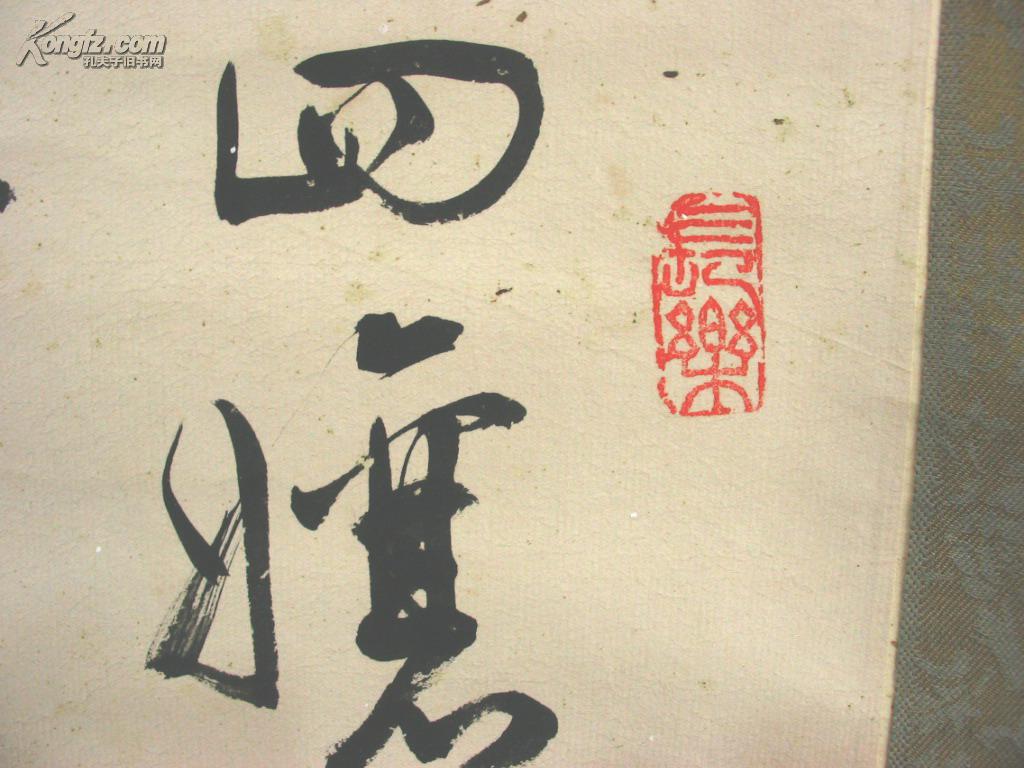 Kongfz.com
孔夫子旧书网
四
長樂